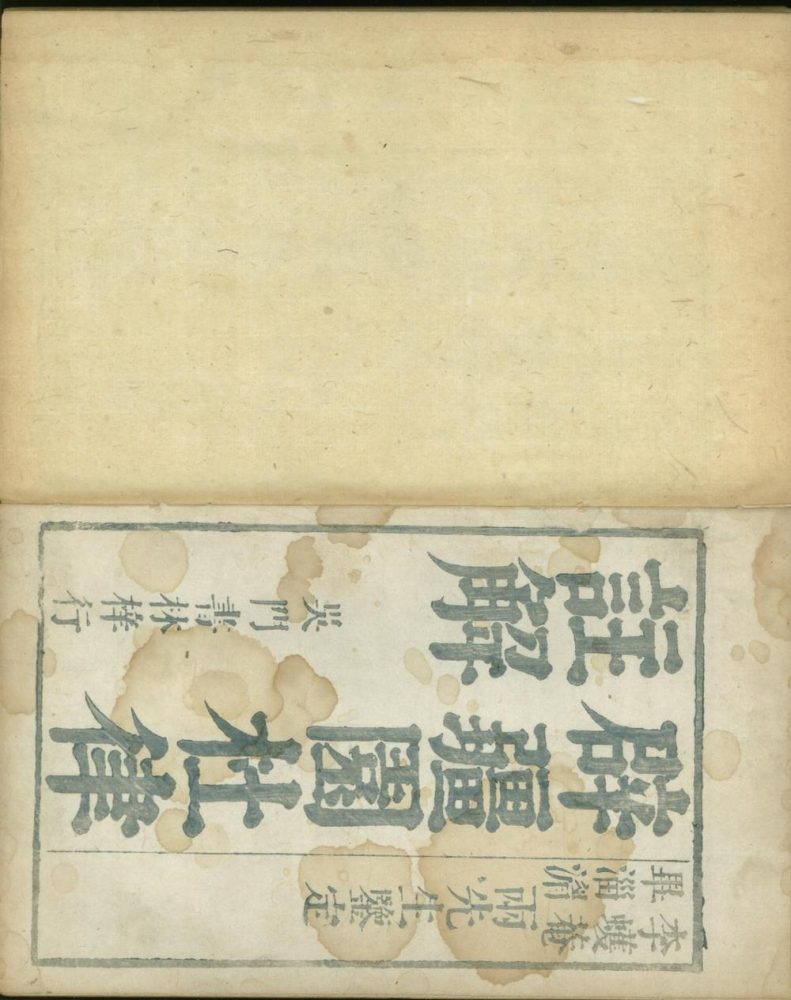 李蠖菴
畢淄湄
兩先生鑒定
辟疆園杜律
註解
吳門書林梓行